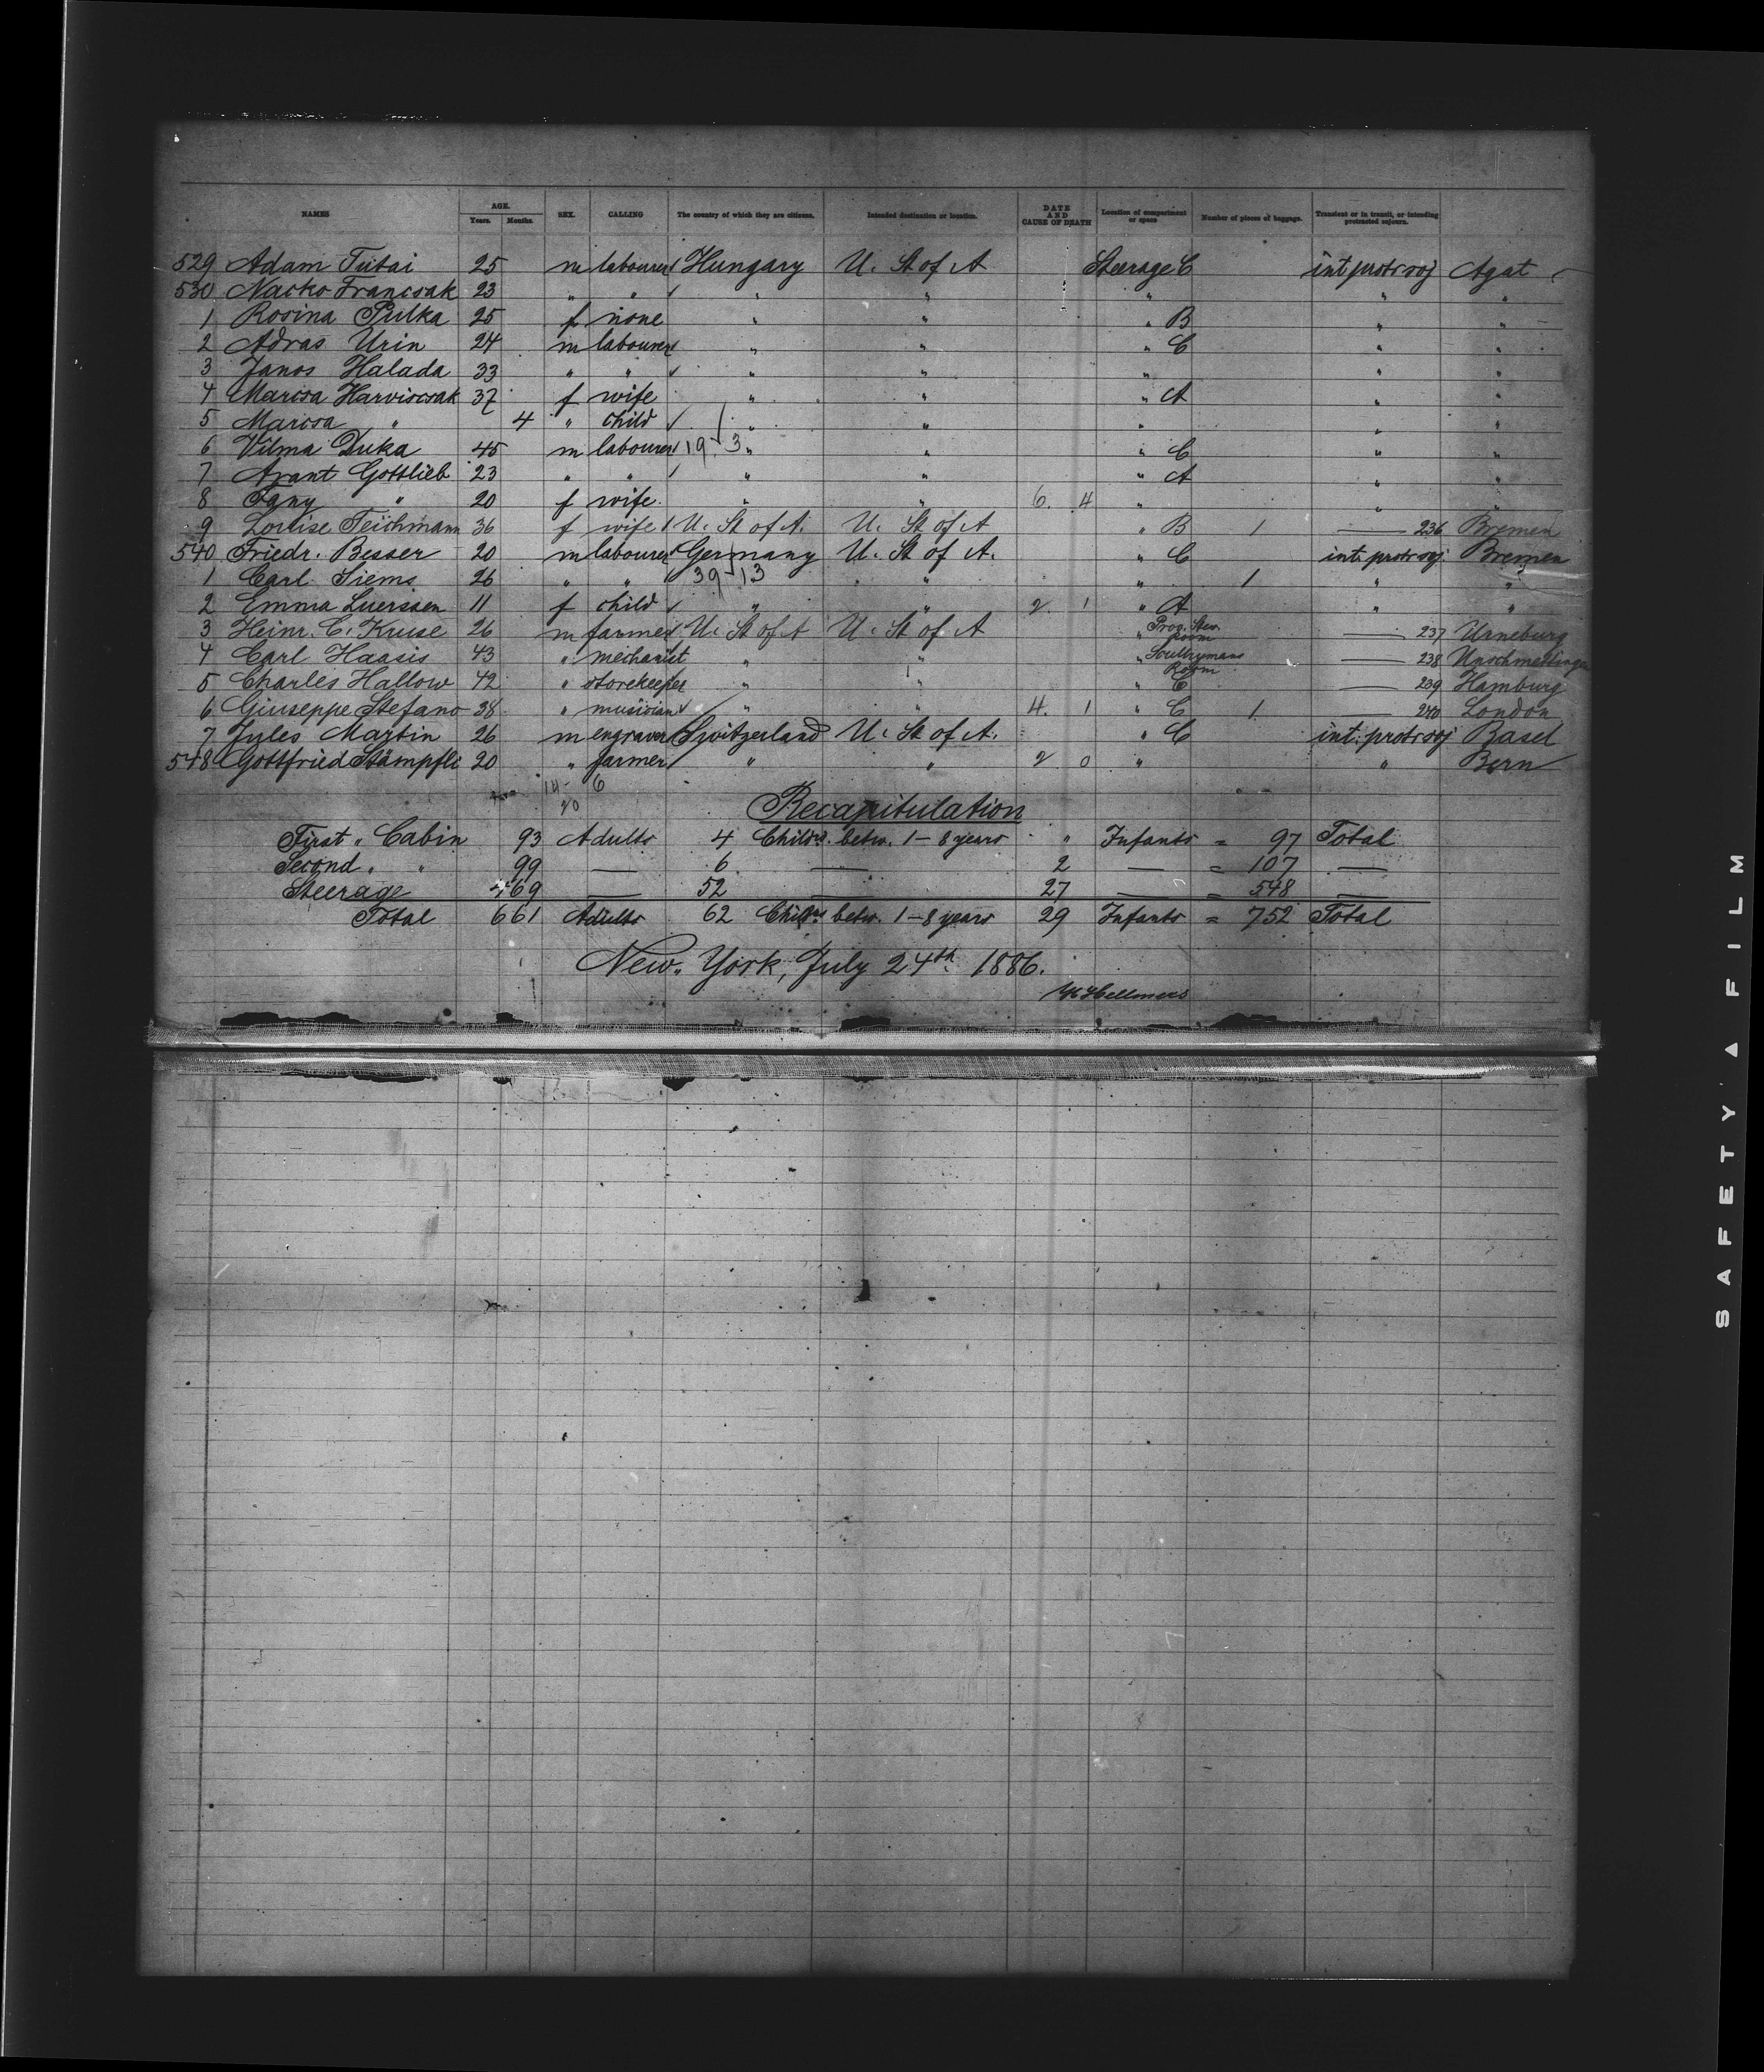 NAMES AGE. Years. Months. SEX. CALLING The country of which they are citizens. Intended destination or location. DATE AND CAUSE OF DEATH Location of compartment or space Number of pieces of baggage. Transient or in transit, or intending protracted sojourn.
529 Adam Tutai 25 m labourer Hungary U. St of A Steerage C int protr soj Agat
530 Nacko Francsak 23 " " " " " " "
1 Rosina Pulka 25 f none " " " B " "
2 Adras Urin 24 m labourer " " " C " "
3 Janos Halada 33 " " " " " " "
4 Marcsa Harviscsak 37 f wife " " " A " "
5 Marcsa " 4 " child " " " " "
6 Vilma Duka 45 m labourer 19-3 " " " C " "
7 Arant Gottlieb 23 " " " " " A " "
8 Fany " 20 f wife " " 6. 4 " " "
9 Louise Teichmann 36 f wife U. St of A. U. St of A " B 1 — 236 Bremen
540 Friedr. Besser 20 m labourer Germany U. St of A. " C int. protr soj. Bremen
1 Carl Siems 26 " " 39-13 " " 1 " "
2 Emma Luerssen 11 f child " " 2. 1 " A " "
3 Heinr. C. Kruse 26 m farmer U. St of A U. St of A " Prov. Stew. Room — 237
4 Carl Haasis 43 " mechanist " " " Room — 238
5 Charles Hallow 42 " storekeeper " " " C — 239 Hamburg
6 Giuseppe Stefano 38 " musician " " 4. 1 " C 1 — 240 London
7 Jules Martin 26 m engraver Switzerland U. St of A. " C int. protr soj Basel
548 Gottfried Stämpfli 20 " farmer " " 2 0 " " Bern
14- 6
20
Recapitulation
First " Cabin 93 Adults 4 Childrn. betw. 1–8 years " Infants = 97 Total
Second " " 99 — 6 — 2 — = 107 —
Steerage 469 — 52 — 27 — = 548 —
Total 661 Adults 62 Childrn betw. 1–8 years 29 Infants = 752 Total
New York, July 24th 1886.
Hellmers
SAFETY FILM